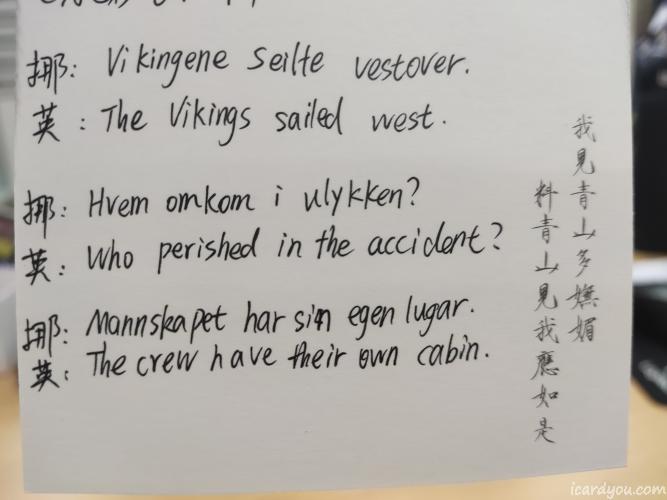 挪: Vikingene seilte vestover.
英: The Vikings sailed west.
挪: Hvem omkom i ulykken?
英: Who perished in the accident?
挪: Mannskapet har sin egen lugar.
英: The crew have their own cabin.
我見青山多嫵媚
料青山見我應如是
icardyou.com